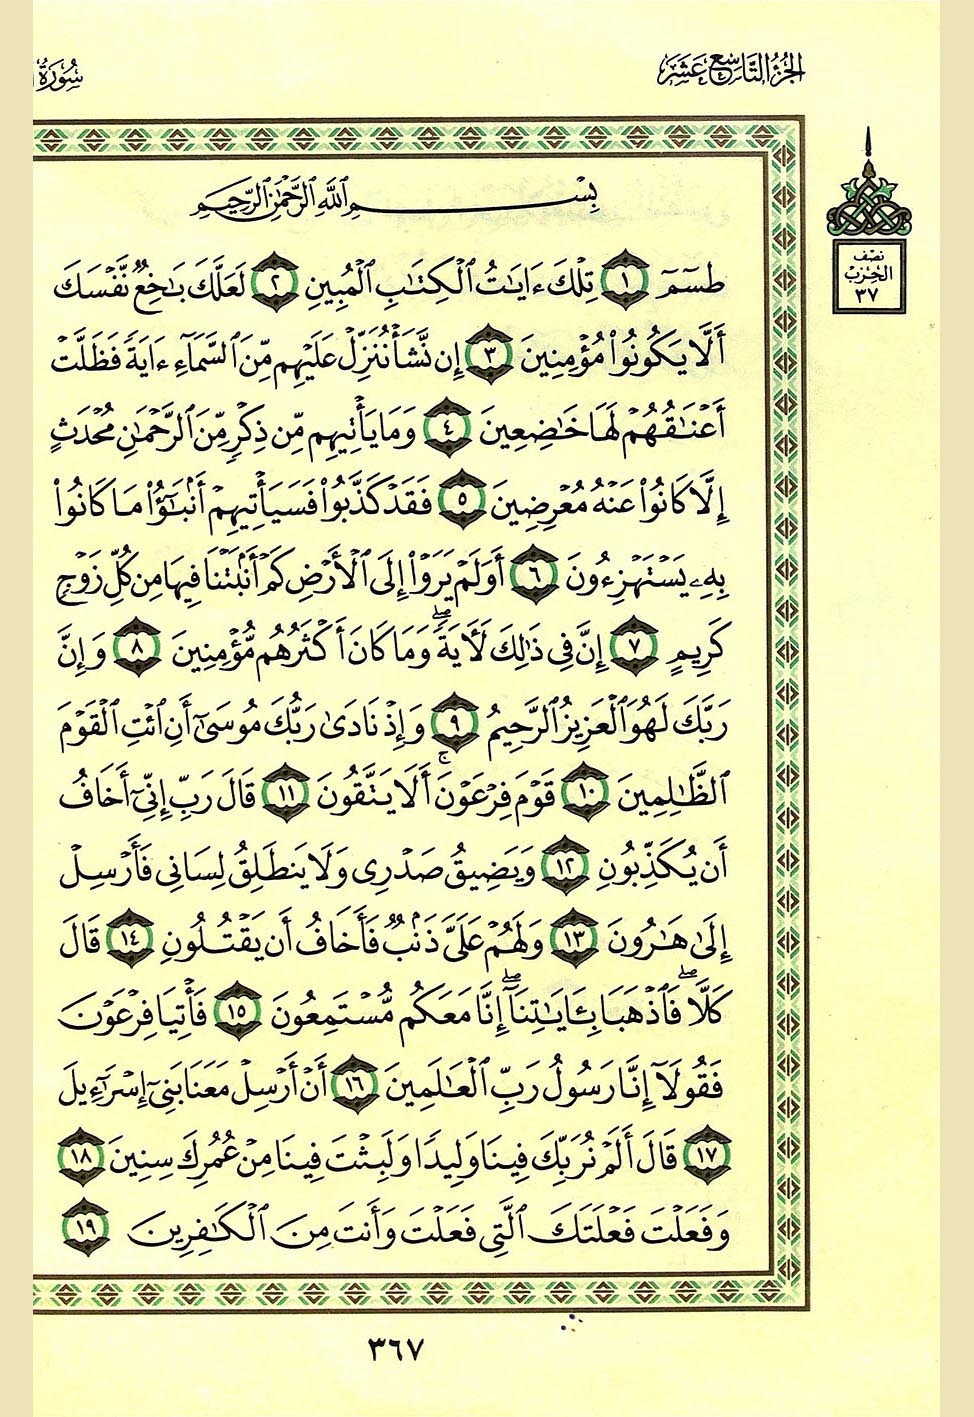 الجزء التاسع عشر
سُورَةُ
نصف
الحزب
٣٧
بِسْمِ ٱللَّهِ ٱلرَّحْمَٰنِ ٱلرَّحِيمِ
طسٓمٓ ١ تِلْكَ ءَايَٰتُ ٱلْكِتَٰبِ ٱلْمُبِينِ ٢ لَعَلَّكَ بَٰخِعٌ نَّفْسَكَ
أَلَّا يَكُونُوا۟ مُؤْمِنِينَ ٣ إِن نَّشَأْ نُنَزِّلْ عَلَيْهِم مِّنَ ٱلسَّمَآءِ ءَايَةً فَظَلَّتْ
أَعْنَٰقُهُمْ لَهَا خَٰضِعِينَ ٤ وَمَا يَأْتِيهِم مِّن ذِكْرٍ مِّنَ ٱلرَّحْمَٰنِ مُحْدَثٍ
إِلَّا كَانُوا۟ عَنْهُ مُعْرِضِينَ ٥ فَقَدْ كَذَّبُوا۟ فَسَيَأْتِيهِمْ أَنۢبَٰٓؤُا۟ مَا كَانُوا۟
بِهِۦ يَسْتَهْزِءُونَ ٦ أَوَلَمْ يَرَوْا۟ إِلَى ٱلْأَرْضِ كَمْ أَنۢبَتْنَا فِيهَا مِن كُلِّ زَوْجٍ
كَرِيمٍ ٧ إِنَّ فِى ذَٰلِكَ لَءَايَةً ۖ وَمَا كَانَ أَكْثَرُهُم مُّؤْمِنِينَ ٨ وَإِنَّ
رَبَّكَ لَهُوَ ٱلْعَزِيزُ ٱلرَّحِيمُ ٩ وَإِذْ نَادَىٰ رَبُّكَ مُوسَىٰٓ أَنِ ٱئْتِ ٱلْقَوْمَ
ٱلظَّٰلِمِينَ ١٠ قَوْمَ فِرْعَوْنَ ۚ أَلَا يَتَّقُونَ ١١ قَالَ رَبِّ إِنِّىٓ أَخَافُ
أَن يُكَذِّبُونِ ١٢ وَيَضِيقُ صَدْرِى وَلَا يَنطَلِقُ لِسَانِى فَأَرْسِلْ
إِلَىٰ هَٰرُونَ ١٣ وَلَهُمْ عَلَىَّ ذَنۢبٌ فَأَخَافُ أَن يَقْتُلُونِ ١٤ قَالَ
كَلَّا ۖ فَٱذْهَبَا بِـَٔايَٰتِنَآ ۖ إِنَّا مَعَكُم مُّسْتَمِعُونَ ١٥ فَأْتِيَا فِرْعَوْنَ
فَقُولَآ إِنَّا رَسُولُ رَبِّ ٱلْعَٰلَمِينَ ١٦ أَنْ أَرْسِلْ مَعَنَا بَنِىٓ إِسْرَٰٓءِيلَ
١٧ قَالَ أَلَمْ نُرَبِّكَ فِينَا وَلِيدًا وَلَبِثْتَ فِينَا مِنْ عُمُرِكَ سِنِينَ ١٨
وَفَعَلْتَ فَعْلَتَكَ ٱلَّتِى فَعَلْتَ وَأَنتَ مِنَ ٱلْكَٰفِرِينَ ١٩
٣٦٧